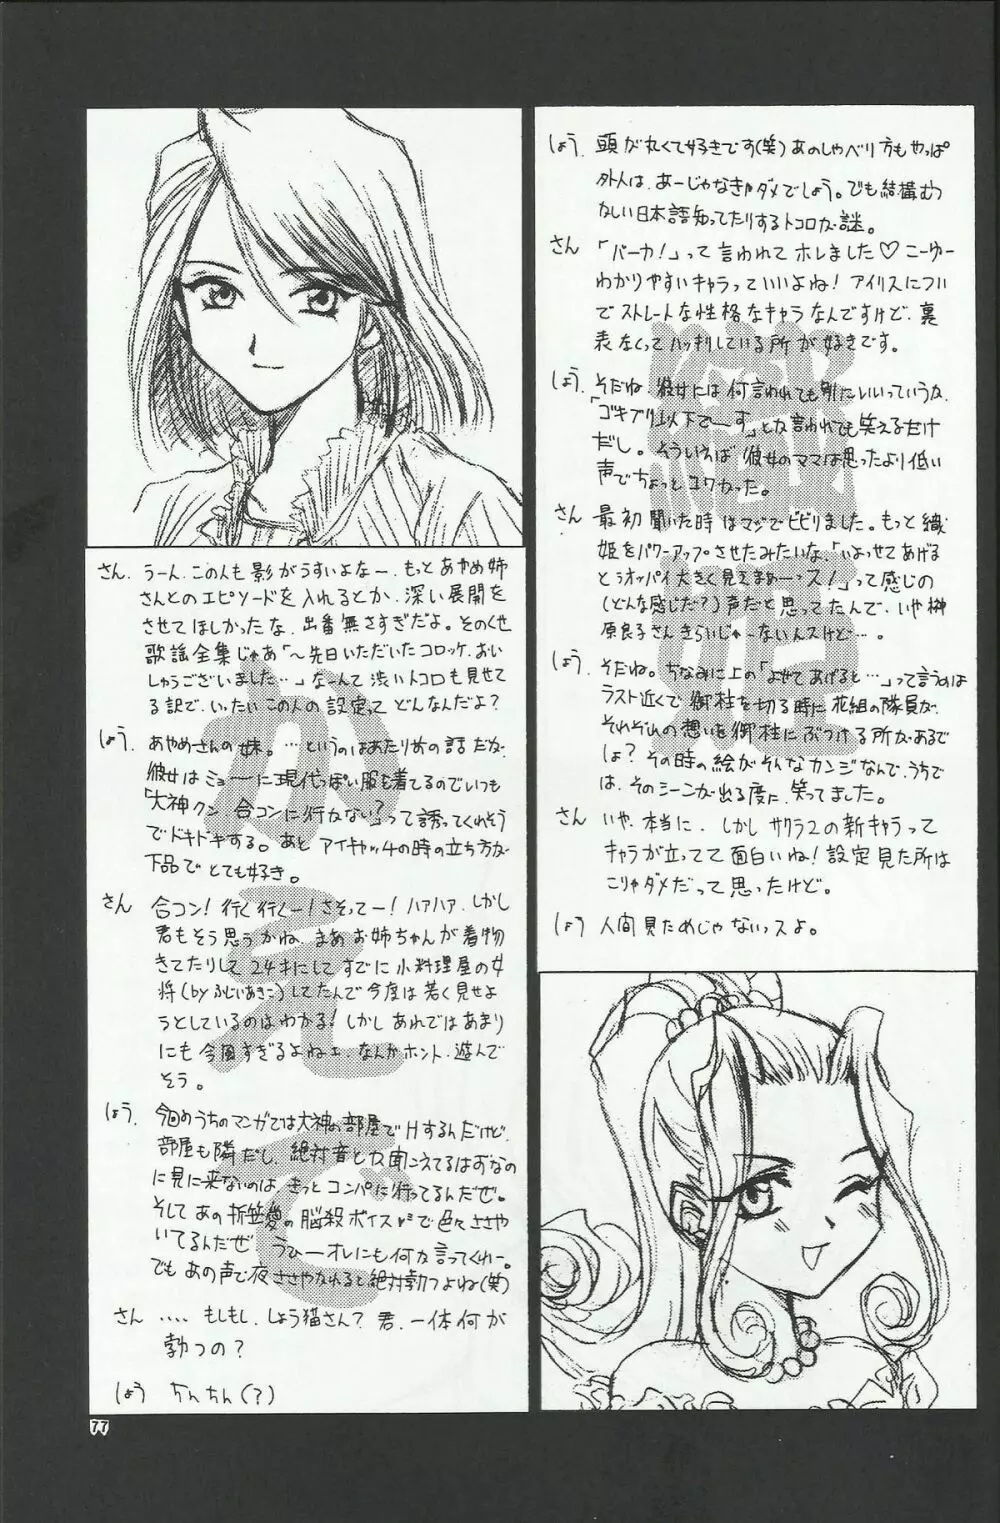 しょう. 頭が丸くて好きです(笑)あのしゃべり方もやっぱ
外人は、あーじゃなきゃダメでしょう。でも結構むつ
かしい日本語知ってたりするトコロが謎。
さん 「バーカ!」って言われてホレました♡こーゆー
わかりやすいキャラっていいよね! アイリスについ
でストレートな性格なキャラなんですけど、裏
表なくってハッキリしている所が好きです。
しょう. そだね. 彼女には何言われても別にいいっていうか、
「ゴキブリ以下でーす」とか言われても笑えるだけ
だし。そういえば 彼女のママは思ったより低い
声でちょっとコワかった。
さん 最初聞いた時はマジでビビりました。もっと織
姫をパワーアップさせたみたいな、「いよせてあげる
とぅオッパイ大きく見えまぁーっス!」って感じの
(どんな感じだ?)声だと思ってたんで、いや榊
原良子さんきらいじゃーないんスけど…。
しょう. そだね。ちなみに上の「よせてあげると…」って言うのは
ラスト近くで御柱を切る時に花組の隊員が、
それぞれの想いを御柱にぶつける所があるで
しょ? その時の絵がそんなカンジなんで、うちで
は、そのシーンが出る度に、笑ってました。
さん いや、本当に、しかしサクラ2の新キャラって
キャラが立ってて面白いね! 設定見た所は
こりゃダメだって思ったけど。
しょう 人間見ためじゃないっスよ。
織姫
さん. うーん、この人も影がうすいよなー、もっとあやめ姉
さんとのエピソードを入れるとか、深い展開を
させてほしかったな、出番無さすぎだよ。そのくせ
歌謡全集じゃあ「~先日いただいたコロッケ、おい
しゅうございました…」なーんて渋いトコロも見せて
る訳で、いったいこの人の設定って どんなんだよ?
しょう. あやめさんの妹。…というのはあたりめの話だが、
彼女はミョーに現代っぽい服も着てるのでいつも
「大神クン、合コンに行かない?」って誘ってくれそう
でドキドキする。あと アイキャッチの時の立ち方が
下品でとても好き。
さん 合コン! 行く行くー! さそってー! ハァハァ、しかし
君もそう思うかね、まあお姉ちゃんが着物
きてたりして24才にしてすでに小料理屋の女
将(byふじいあきこ)してたんで今度は若く見せよ
うとしているのはわかる! しかしあれではあまり
にも今風すぎるよねェ、なんかホント、遊んで
そう。
しょう. 今回のうちのマンガでは大神の部屋でHするんだけど、
部屋も隣だし、絶対音とか聞こえてるはずなの
に見に来ないのは きっとコンパに行ってるんだぜ。
そしてあの折笠愛の脳殺ボイスで色々ささや
いてるんだぜ うひーオレにも何か言ってくれー。
でもあの声で夜ささやかれると絶対勃つよね(笑)
さん …. もしもし、しょう猫さん? 君、一体何が
勃つの?
しょう ちんちん(?)
かえで
77